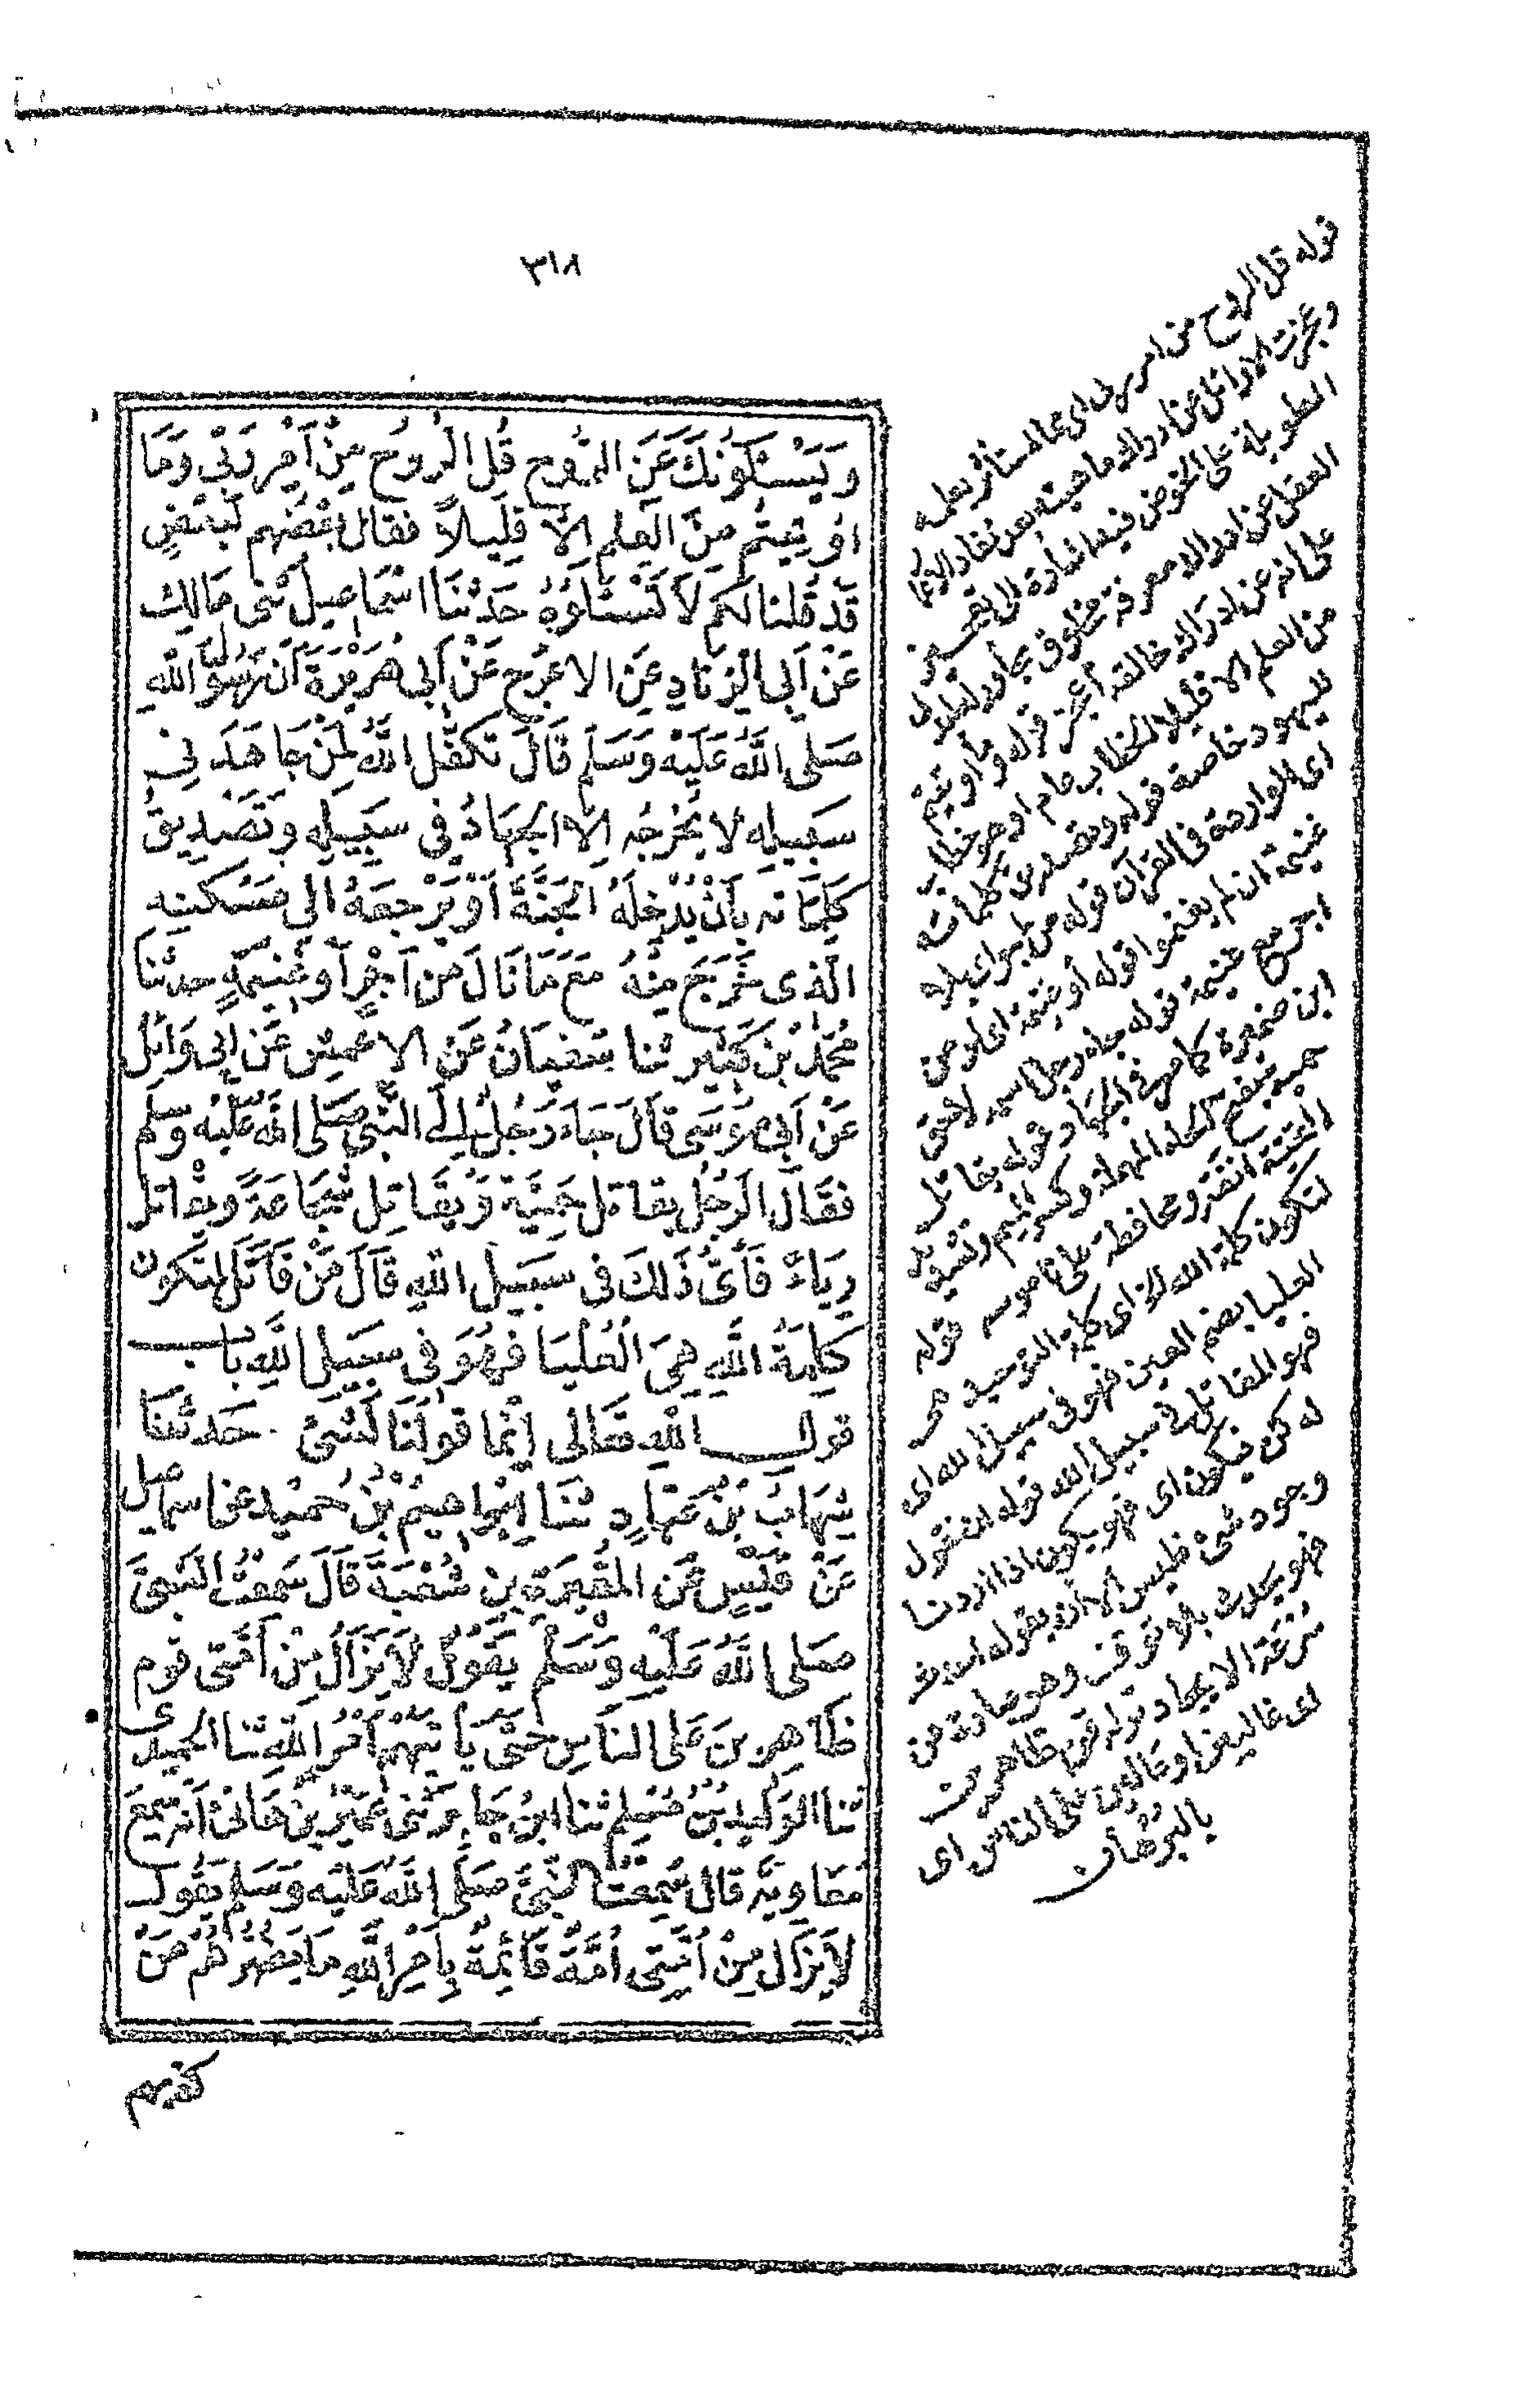 ٣١٨
وَيَسْئَلُونَكَ عَنِ الرُّوحِ قُلِ الرُّوحُ مِنْ أَمْرِ رَبِّي وَمَا
اُوْتِيتُمْ مِنَ الْعِلْمِ اِلاَّ قَلِيلاً فقال بَعْضُهم لِبَعْضٍ
قَدْ قُلنا لكم لاَ تَسْئَلُوُهُ حَدثنَا اسْمَاعِيل ثنى مَالِك
عَنْ اَبِى الزِنَادِ عَنِ الاعْرَجِ عَنْ اَبِى هُرَيْرَةَ اَنَّ رَسُولَ الله
صَلى اللَّهُ عَلَيْهِ وَسَلم قَالَ تَكفَّلَ اللَّهُ لِمَنْ جَاهَدَ فِى
سَبِيلِهِ لا يُخْرِجُه اِلاَّ الجِهَادُ فِى سَبِيلِهِ وَتَصْدِيقُ
كَلِمَاتِه بِاَنْ يُدْخِلَهُ الْجَنَّةَ اَوْ يَرْجِعَهُ الى مَسْكَنِهِ
الَّذِى خَرَجَ مِنْهُ مَعَ مَا نَالَ مِنْ اَجْرٍ اَوْ غَنِيمَةٍ حدثنَا
مُحَمَّدُ بْنُ كَثِيرٍ ثنا سُفيَانُ عَنِ الاعْمَشِ عَنْ اَبِى وَائِل
عَنْ اَبِى مُوسَى قَالَ جَاءَ رَجُلٌ اِلَى النَّبِى صَلَّى اللَّهُ عَلَيْهِ وَسَلم
فَقَالَ الرَّجُلُ يقاتل حَمِيَّةً وَيُقَاتِل شَجَاعَةً وَيقاتل
رِيَاءً فَاَىُّ ذَلِكَ فِى سَبِيلِ اللهِ قَالَ مَنْ قَاتَلَ لِتَكونَ
كَلِمَةُ اللَّهِ هِىَ الْعُلْيَا فَهُوَ فِى سَبِيلِ اللَّهِ باب
قول اللهِ تَعَالى اِنَّمَا قَولُنَا لِشَىْءٍ حَدثنَا
شِهَابُ بْنُ عَبَّادٍ ثنَا اِبْرَاهِيمُ بْنُ حُمَيْدٍ عن اسماعيل
عَنْ قَيْسٍ عَنِ المُغِيرَةِ بنِ شُعْبَةَ قَالَ سَمِعْتُ النَّبِىَّ
صَلى اللَّهُ عَلَيْهِ وَسَلَّم يَقُولُ لاَ يَزَالُ مِنْ اُمَّتِى قوم
ظَاهِرِينَ عَلى النَّاسِ حَتَّى يَأْتِيَهُمْ اَمْرُ اللَّهِ ثنا الحميدى
ثنا الوَلِيدُ بْنُ مُسْلِمٍ ثنا ابنُ جَابِرٍ ثنى عُمَيْرُ بْنُ هَانِىءٍ اَنه سَمِعَ
مُعَاوِيَة قال سَمِعْتُ النَّبِىَّ صَلَّى اللَّهُ عَلَيْهِ وَسَلم يَقُول
لاَ يَزَال مِنْ اُمَّتِى اُمَّةٌ قَائِمَةٌ بِاَمْرِ اللَّهِ مَا يَضُرُّهُمْ مَنْ
كذبهم
قوله قل الروح من امر ربى اى مما استأثر بعلمه
وعجزت الاوائل عن ادراك ماهيته بعد نفاد الاعمار
الطويلة على الخوض فيه اشارة الى تعجيز
العقل عن ادراك معرفة مخلوق مجاور له ليدل
على انه عن ادراك خالقه أعجز قوله وما اوتيتم
من العلم الا قليلا الخطاب عام او هو خطاب
لليهود خاصة قوله وتصديق كلماته
اى الواردة فى القرآن قوله من اجر اى بلا
غنيمة ان لم يغنموا قوله أو غنيمة اى او من
اجر مع غنيمة قوله جاء رجل اسمه لاحق
ابن ضميرة كما مر فى الجهاد قوله يقاتل
حمية بفتح الحاء المهملة وكسر الميم وتشديد
التحتية انفة ومحافظة على ناموسه قوله
لتكون كلمة الله اى كلمة التوحيد هى
العليا بضم العين فهو فى سبيل الله اى
فهو المقاتل فى سبيل الله قوله ان نقول
له كن فيكون اى فهو يكون اذا اردنا
وجود شىء فليس الا ان نقول له احدث
فهو يحدث بلا توقف وهو عبارة عن
سرعة الايجاد قوله قوم ظاهرين
اى غالبين او عالين على الناس اى
بالبرهان